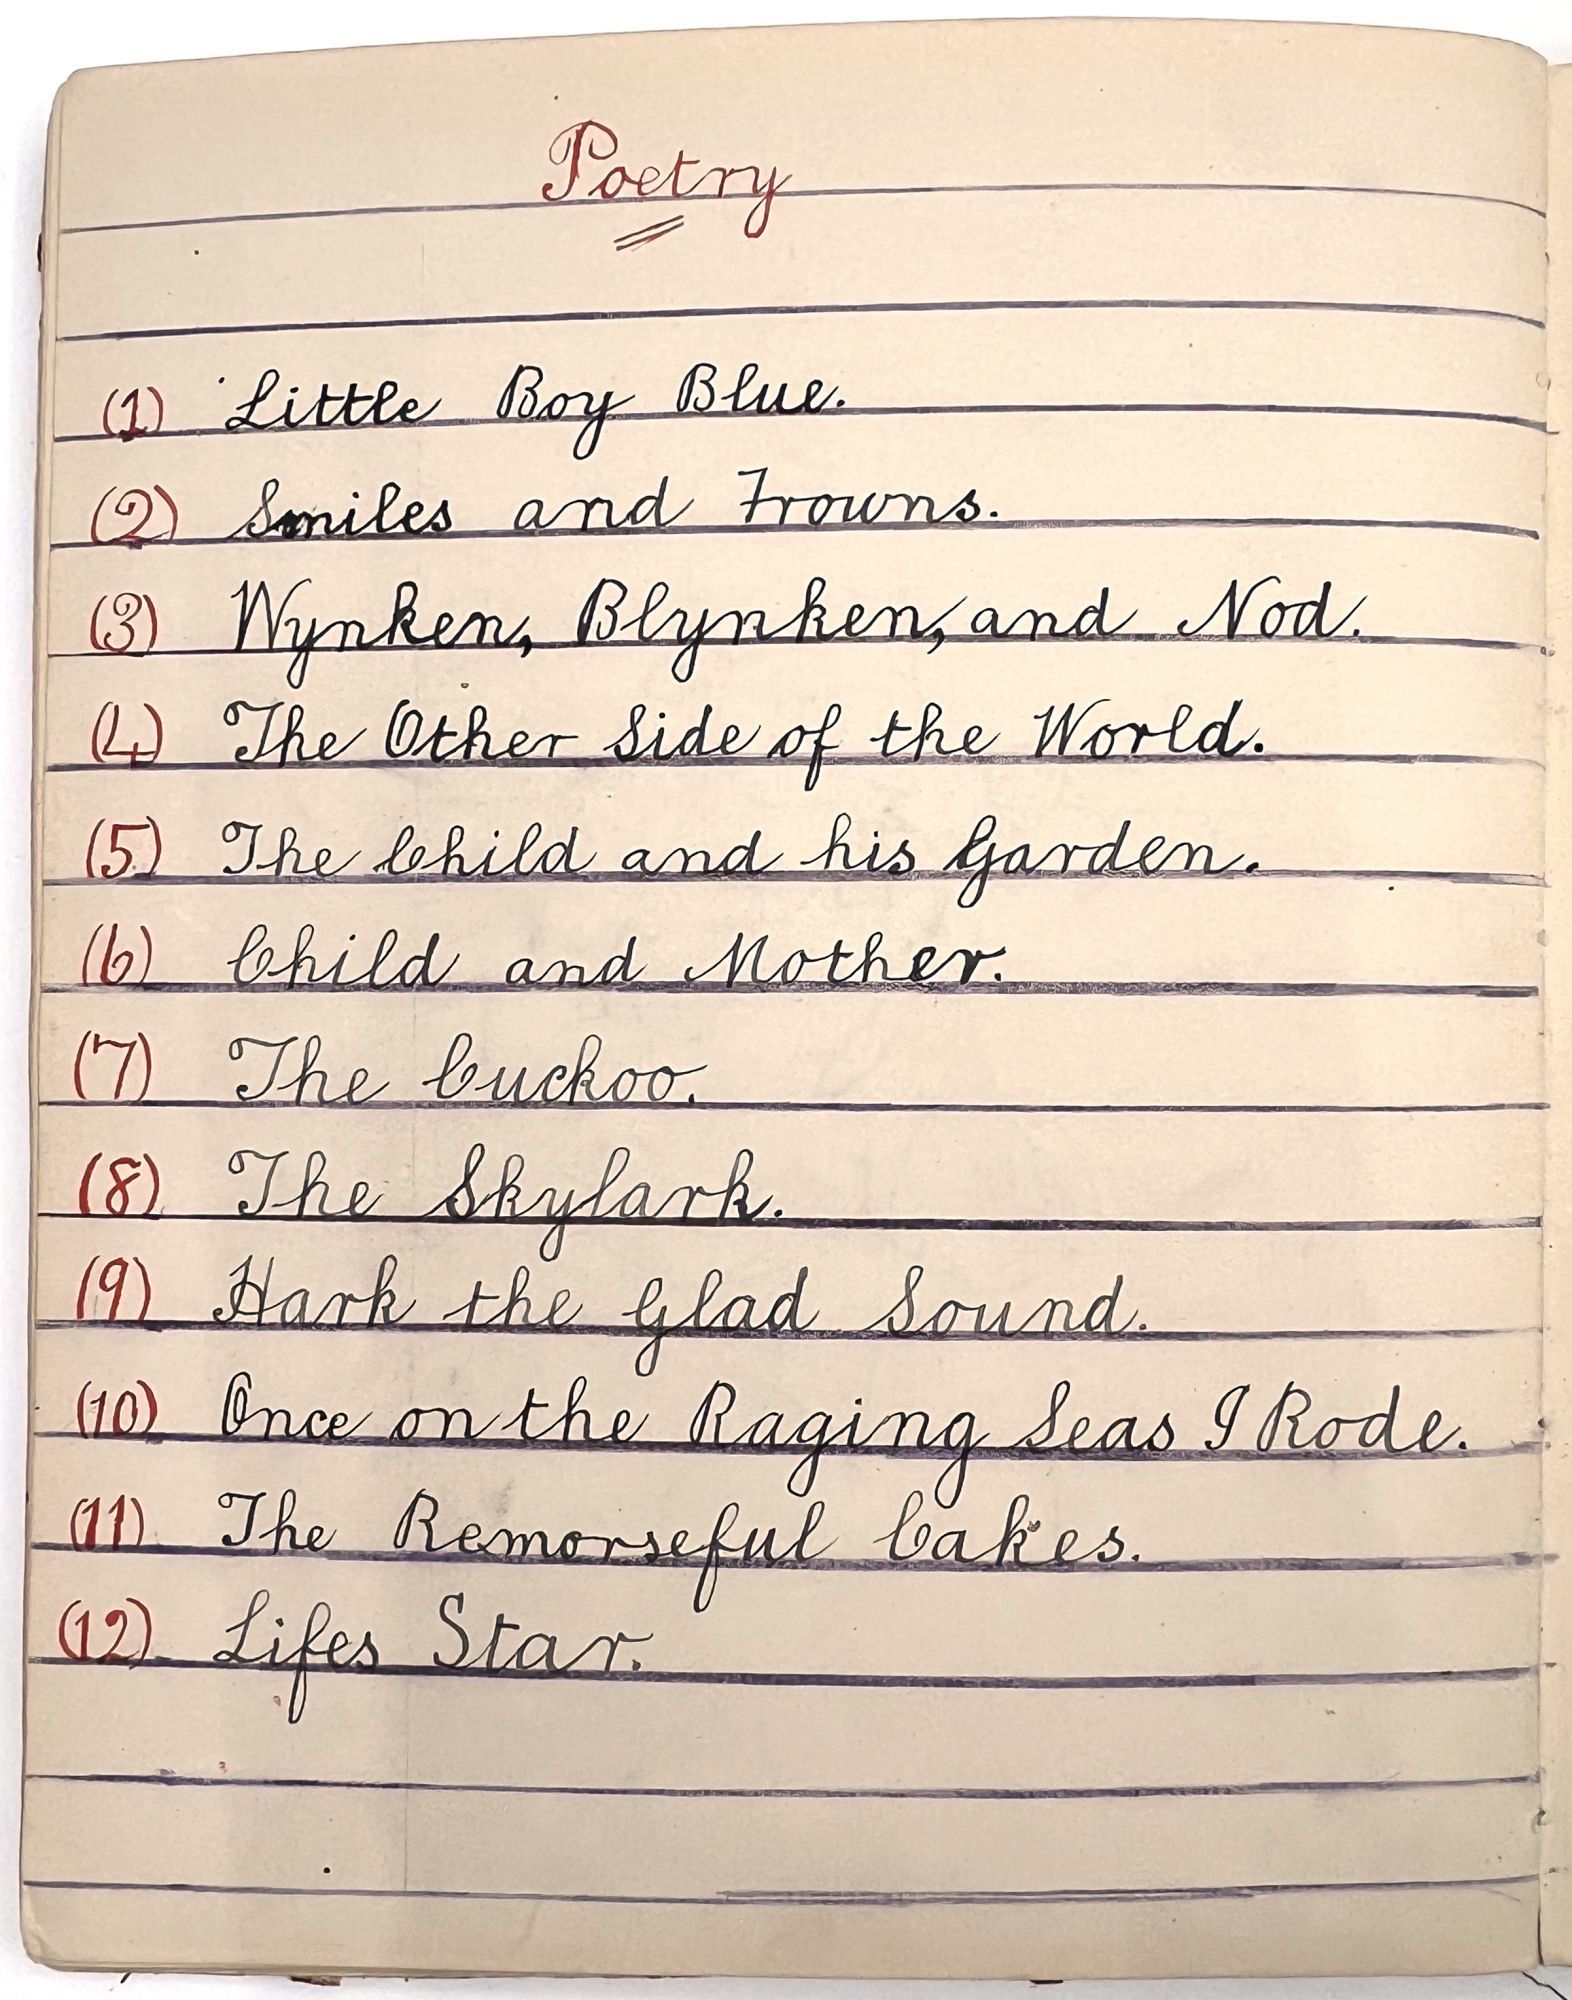 Poetry
(1) Little Boy Blue.
(2) Smiles and Frowns.
(3) Wynken, Blynken, and Nod.
(4) The Other Side of the World.
(5) The Child and his Garden.
(6) Child and Mother.
(7) The Cuckoo.
(8) The Skylark.
(9) Hark the Glad Sound.
(10) Once on the Raging Seas I Rode.
(11) The Remorseful Cakes.
(12) Lifes Star.